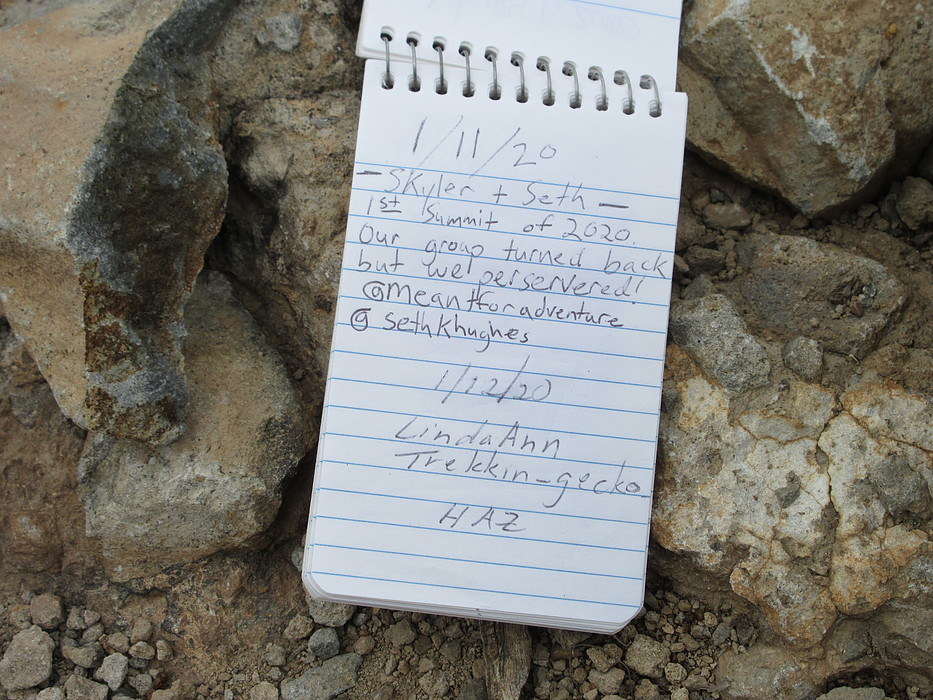 1/11/20
- Skyler + Seth -
1st Summit of 2020.
Our group turned back
but we perservered!
@meantforadventure
@sethkhughes
1/12/20
LindaAnn
Trekkin-gecko
HAZ